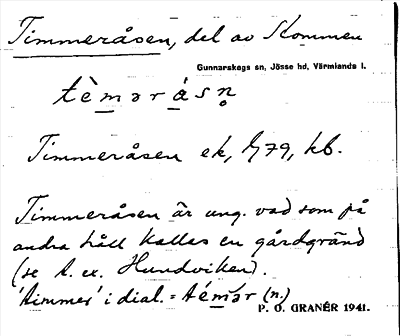 Timmeråsen, del av Kommen
Gunnarskogs sn, Jösse hd, Värmlands l.
tè̱mərá̱sn̥
Timmeråsen ek, 1/79, kb.
Timmeråsen är ung. vad som på
andra håll kallas en gårdgränd
(se t. ex. Hundviken).
'timmer' i dial. = témər (n.)
P. O. GRANÉR 1941.